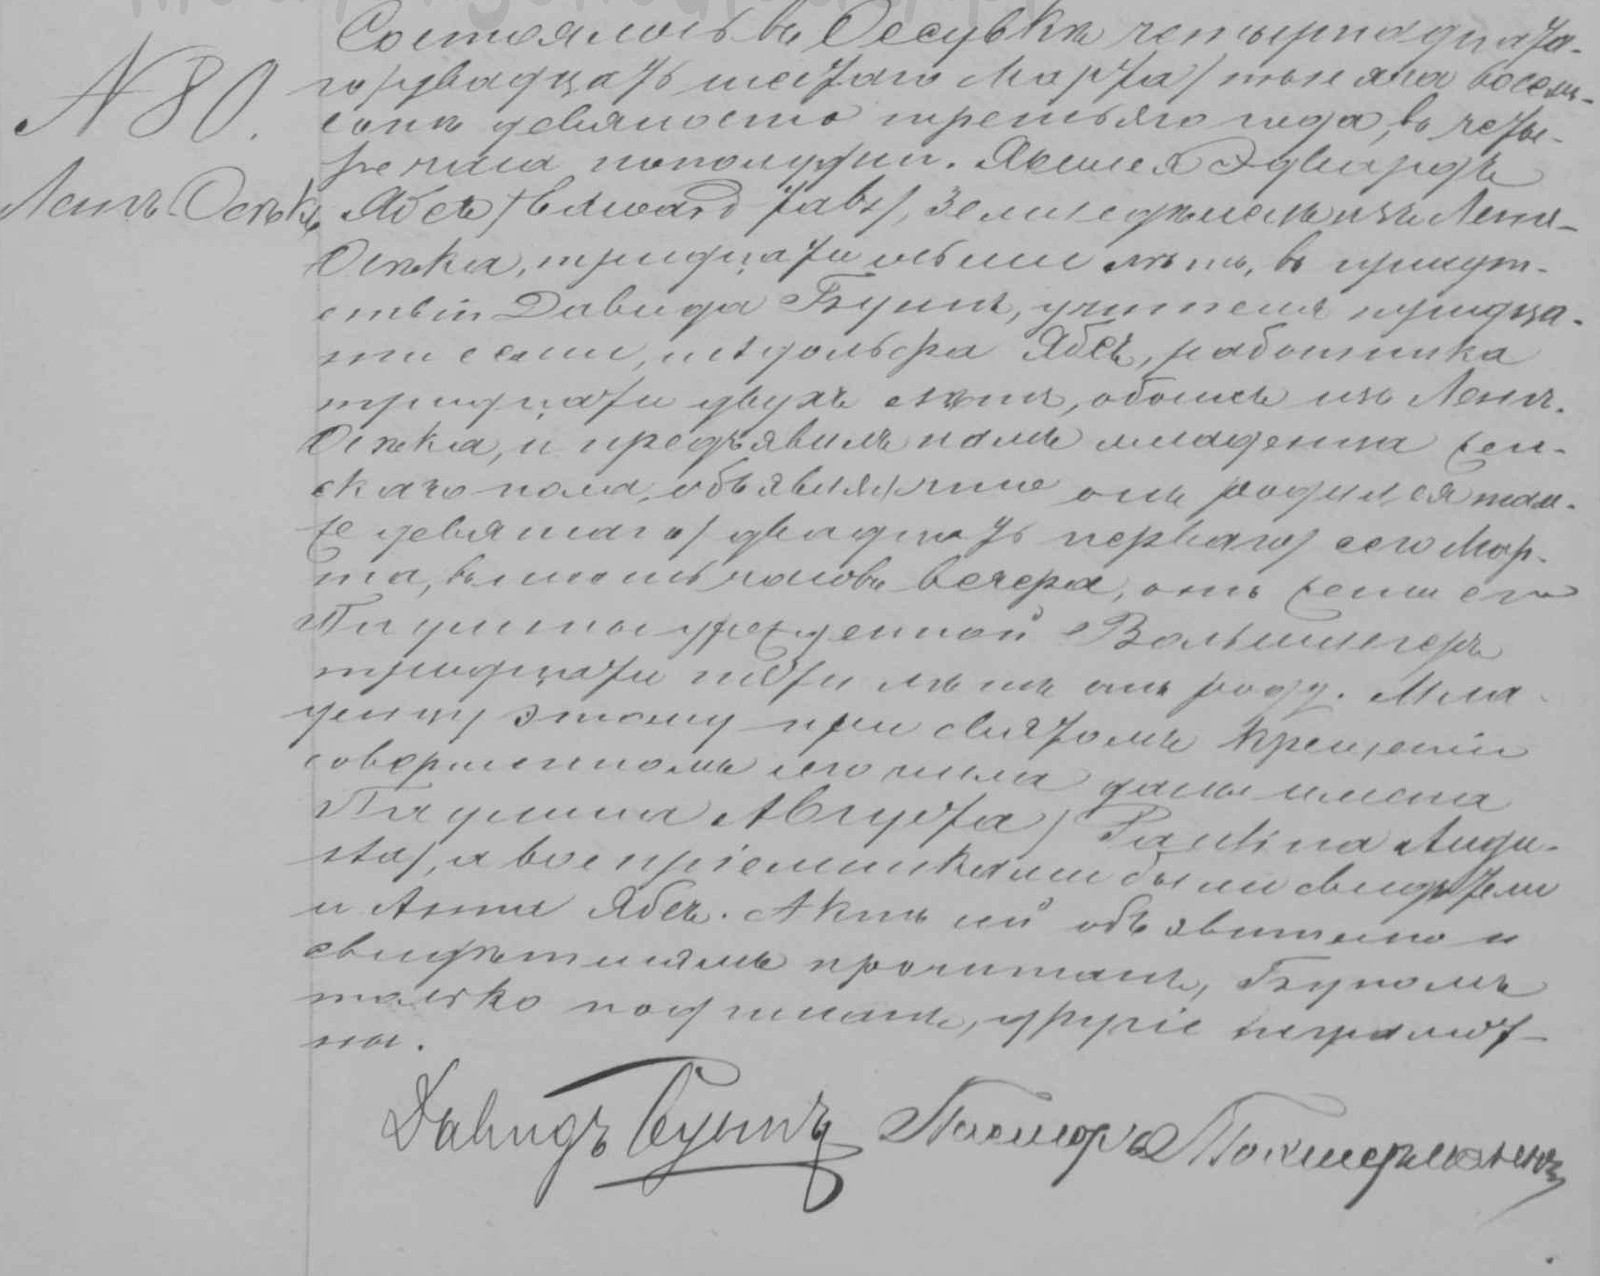 Состоялось въ Оссувкѣ четырнадцата-
го /двадцать шестаго Марта/ тысяча восемь-
сотъ девяносто третьяго года, въ четы-
ре часа пополудни. Явился Эдвардъ
N 80.
Ленкъ Осѣка
Ябсъ /Edward Jabs/, земледѣлецъ изъ Ленк-
Осѣка, тридцати осьми лѣтъ, въ присут-
ствіи Давида Буша, учителя тридца-
ти семи, и Адольфа Ябсъ, работника
тридцати двухъ лѣтъ, обоихъ изъ Ленк.
Осѣка, и предъявилъ намъ младенца жен-
скаго пола, объявляя, что онъ родился там-
же девятаго /двадцать перваго/ сего Мар-
та, въ шесть часовъ вечера, отъ жены его
Паулины урожденной
тридцати пяти лѣтъ отъ роду. Мла-
денцу этому при святомъ крещеніи
совершенномъ сего числа даны имена
Паулина Августа / Paulina Augu-
sta/, а воспріемниками были свидѣтели
и Анна Ябсъ. Актъ сей объявителю и
свидѣтелямъ прочитанъ,
только подписанъ, другіе неграмот-
ны.
Давидъ Пасторъ